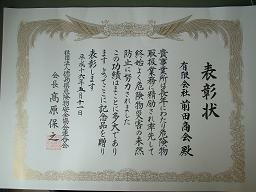 表彰状
有限会社 前田商会 殿
貴事業所は長年にわたり危険物
取扱業務に精励され率先して
終始よく危険物災害の未然
防止に努力されました
この功績はまことに多大であり
ます よってここに記念品を贈り
表彰します
平成十六年五月二十一日
会長 高原保之